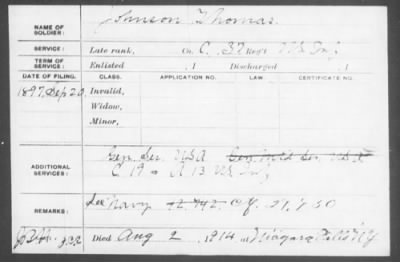 NAME OF SOLDIER: Johnson Thomas
SERVICE: Late rank, Co. C, 32 Reg't US Inf
TERM OF SERVICE: Enlisted , 1 Discharged , 1
DATE OF FILING. CLASS. APPLICATION NO. LAW. CERTIFICATE NO.
1897, Sep 20 Invalid,
Widow,
Minor,
Gen. Ser. USA
ADDITIONAL SERVICES: C 19 A 13 US Inf
REMARKS: See Navy
Died Aug 2, 1914 at Niagara Falls NY